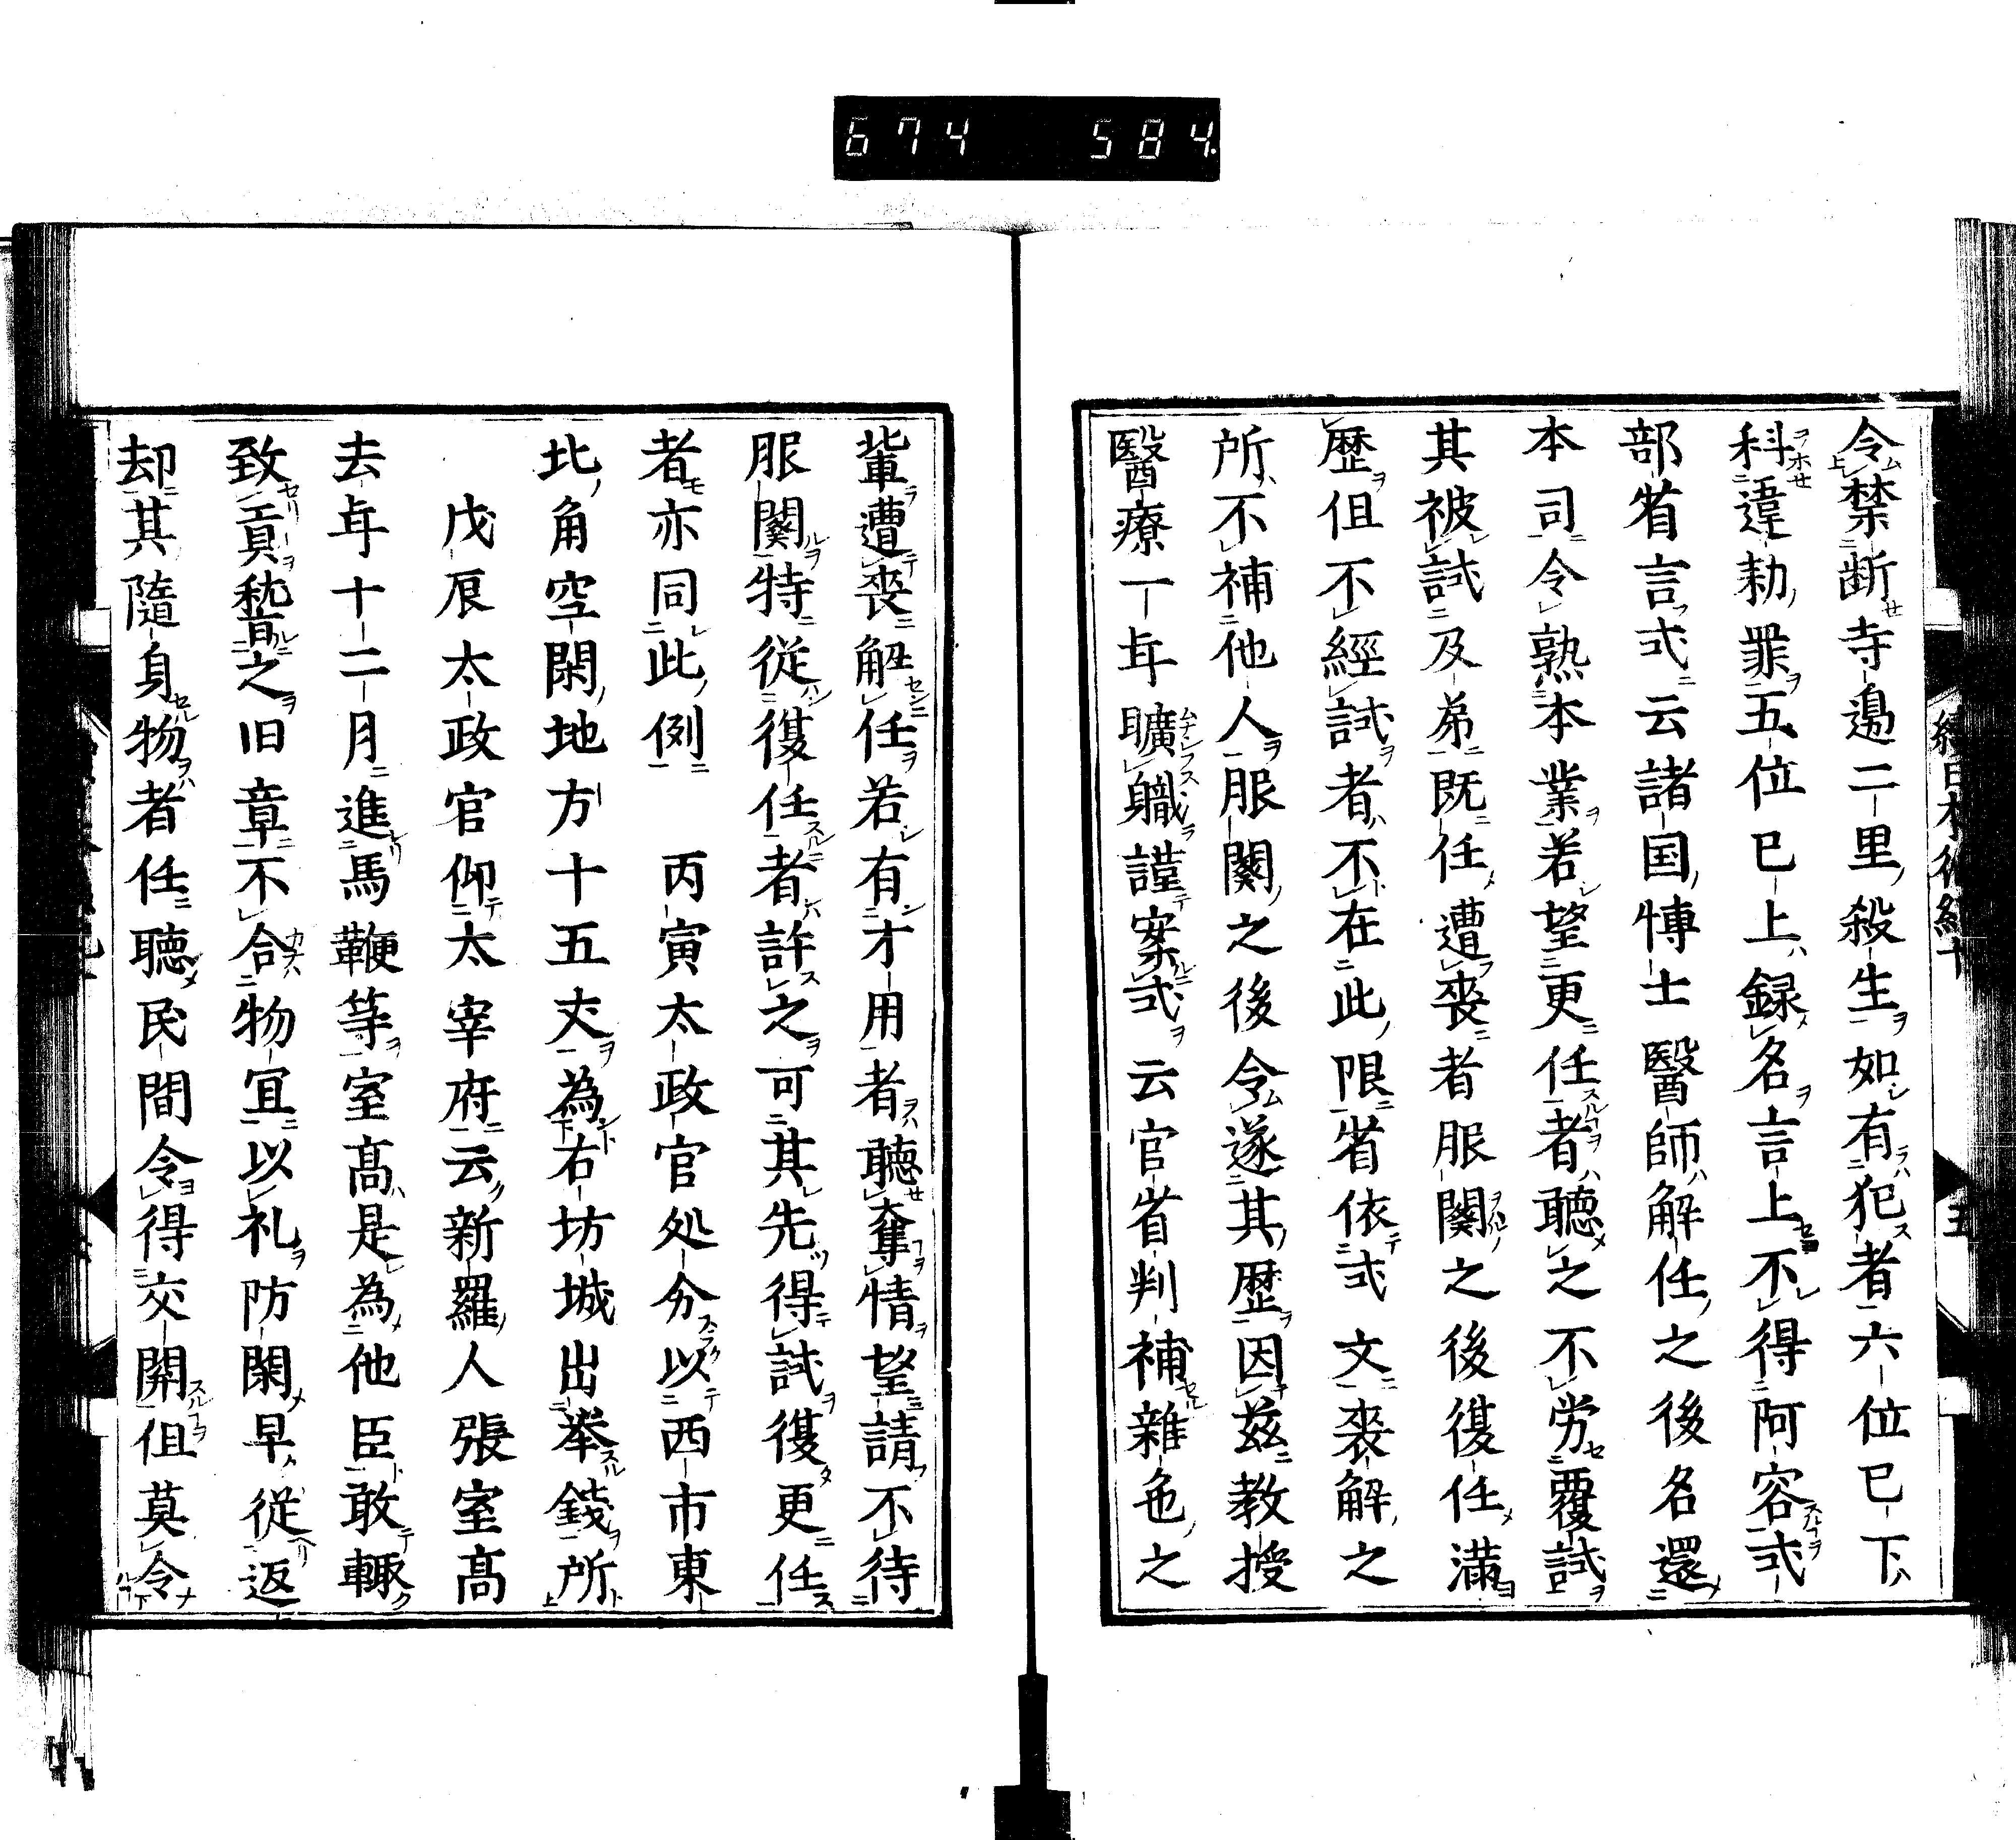 674 584
令禁断寺邉二里殺生如有犯者六位已下
科違勅罪五位已上録名言上不得阿容式
部省言式云諸国博士醫師解任之後名還
本司令熟本業若望更任者聴之不労覆試
其被試及弟既任遭喪者服闋之後復任満
歴但不經試者不在此限省依式文喪解之
所不補他人服闋之後令遂其歴因兹教授
醫療一年曠職謹案式云官省判補雜色之
軰遭喪解任若有才用者聴奪情望請不待
服闋特從復任者許之可其先得試復更任
者亦同此例　丙寅太政官処分以西市東
北角空閑地方十五丈為右坊城出挙錢所
戊辰太政官仰太宰府云新羅人張室髙
去年十二月進馬鞭等室髙是為他臣敢輙
致貢𥡴之旧章不合物宜以礼防閑早從返
却其隨身物者任聴民間令得交関但莫令